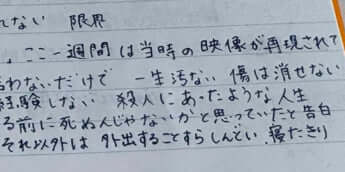 れない 限界
ここ一週間は当時の映像が再現されて
言わないだけで 一生汚ない 傷は消せない
経験しない 殺人にあったような人生
る前に死ぬ人じゃないかと思っていたと告白
それ以外は 外出することすらしんどい 寝たきり